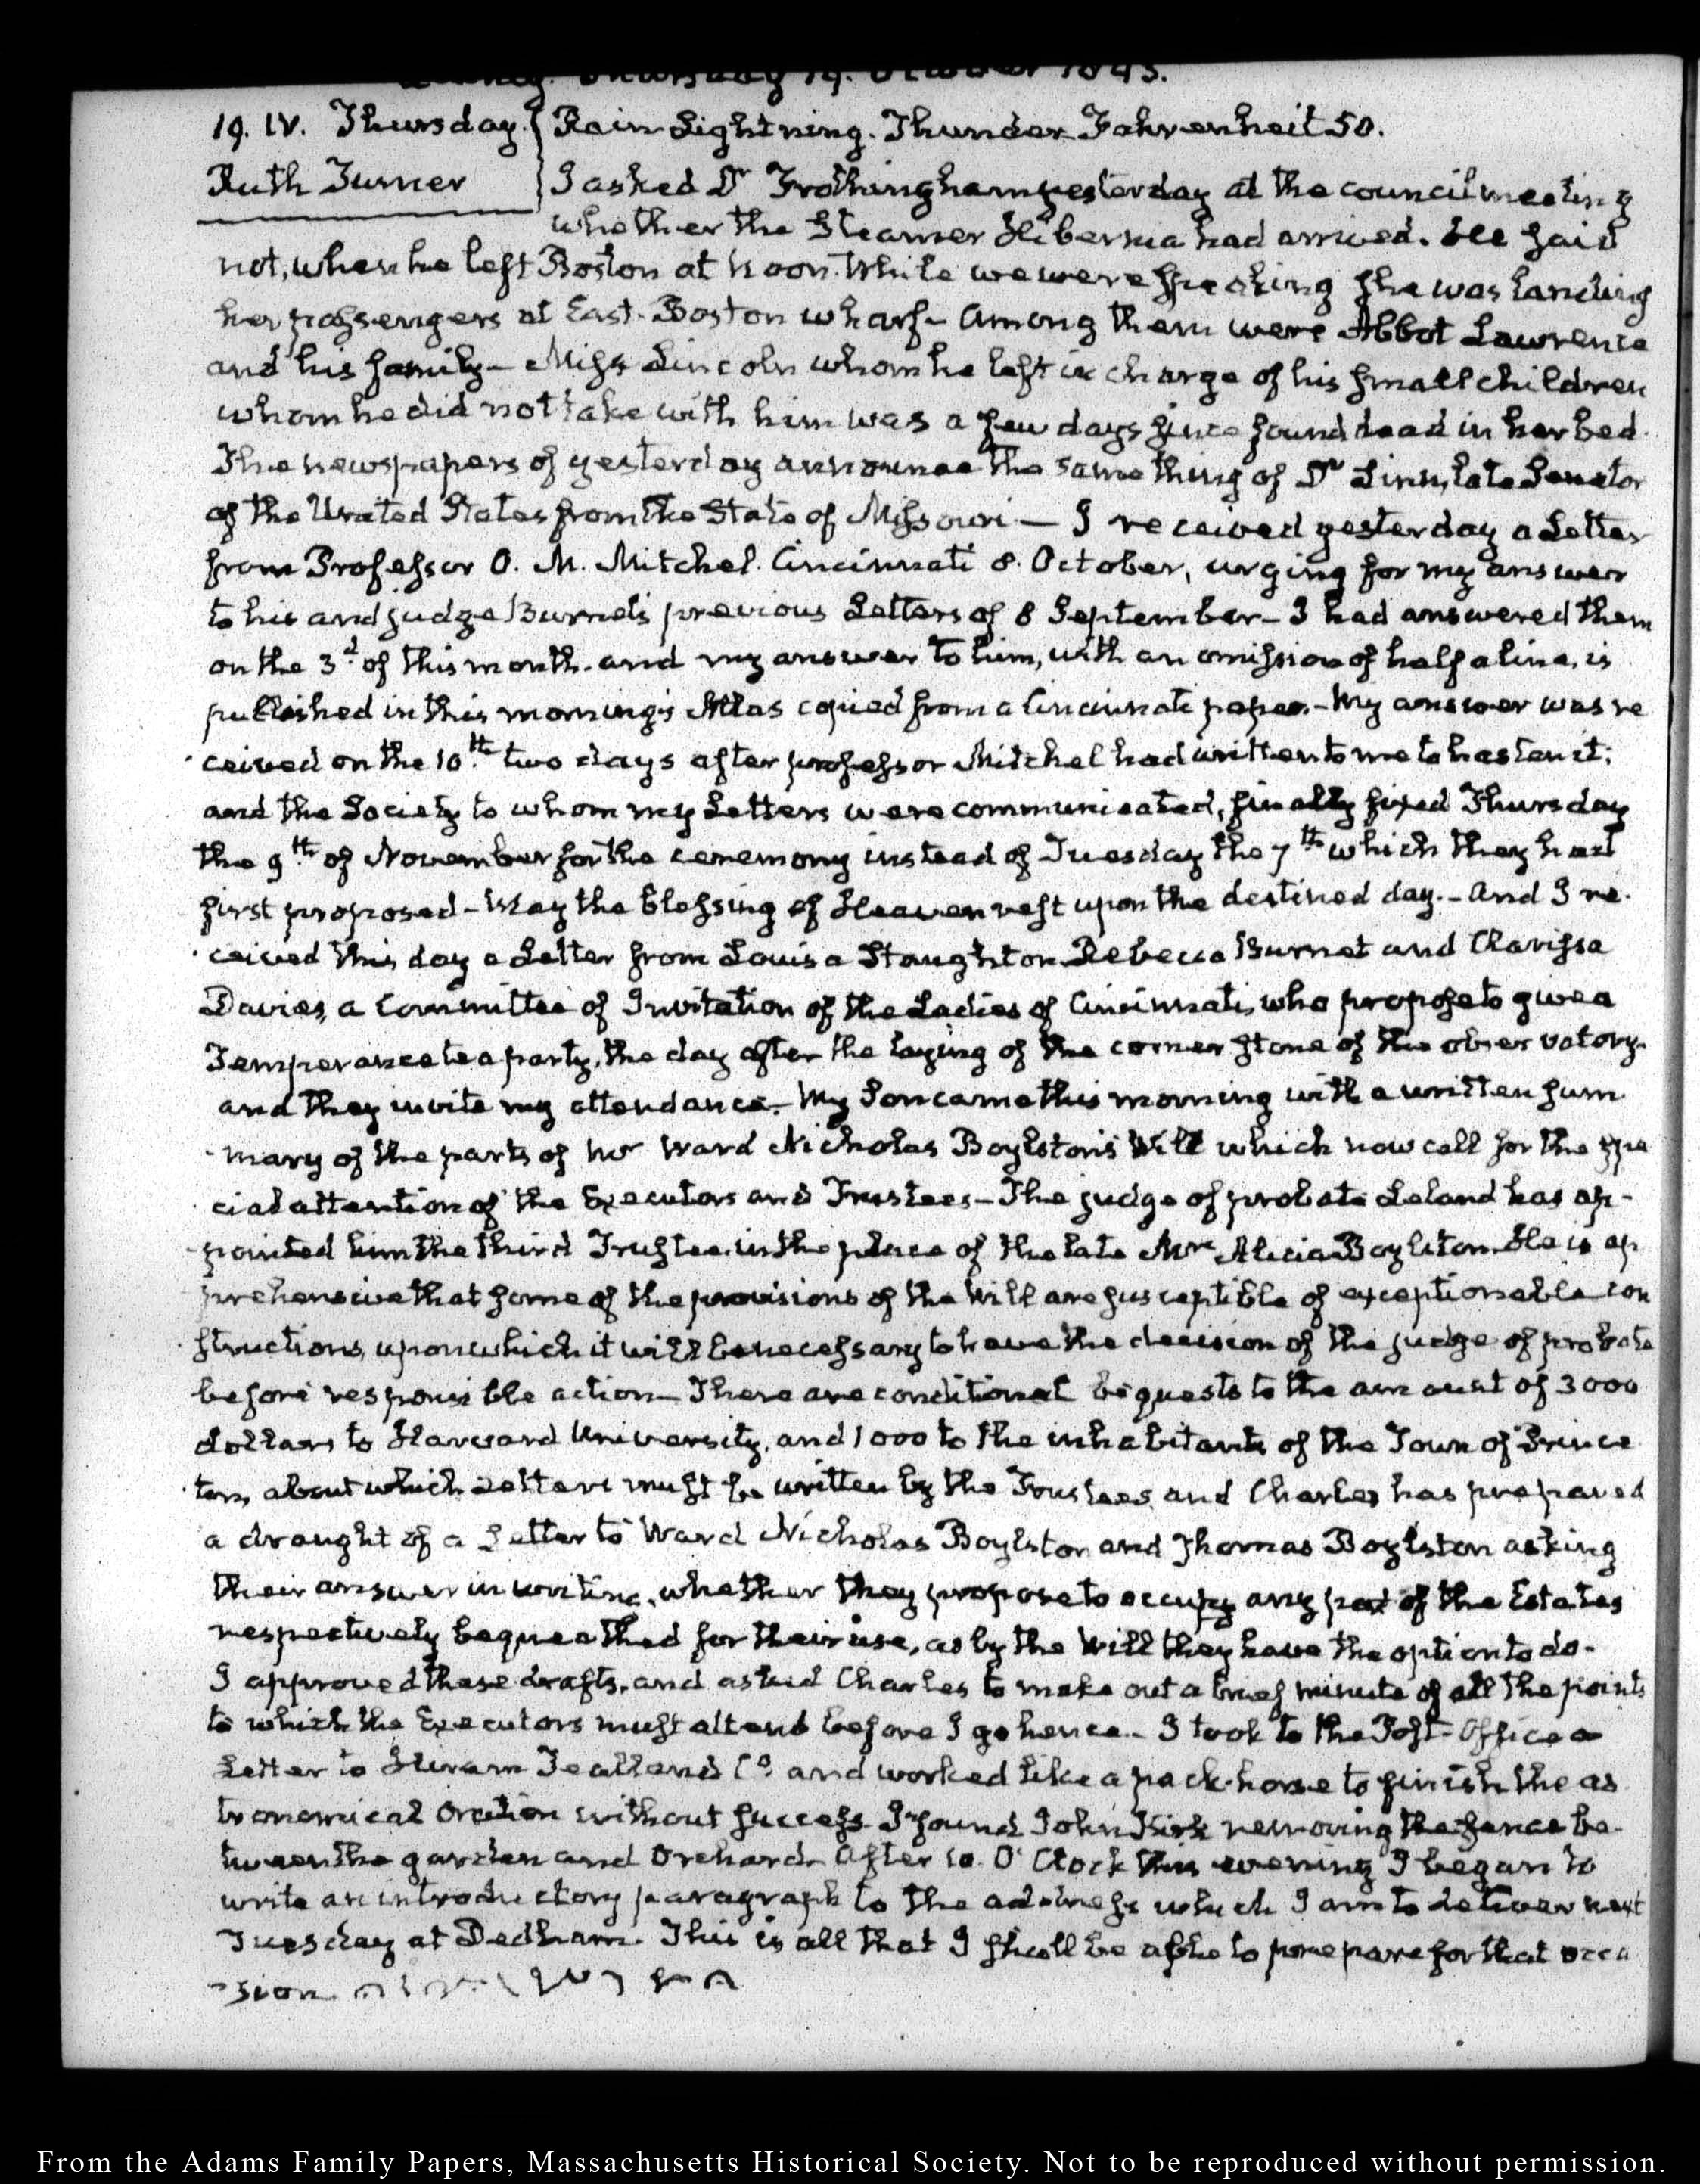 Quincy. Thursday 19. October 1843.
19. IV. Thursday. Rain Lightning. Thunder Fahrenheit 50.
Ruth Turner I asked Dr Frothingham yesterday at the council meeting
whether the Steamer Hibernia had arrived. He said
not, when he left Boston at Noon. While we were speaking she was landing
her passengers at East-Boston wharf— Among them were Abbot Lawrence
and his family— Miss Lincoln whom he left in charge of his small children
whom he did not take with him was a few days since found dead in her bed.
The newspapers of yesterday announce the same thing of Dr Linn, late Senator
of the United States from the State of Missouri— I received yesterday a Letter
from Professor O. M. Mitchel. Cincinnati 8. October, urging for my answer
to his and judge Burnet's previous Letters of 8 September— I had answered them
on the 3d of this month. and my answer to him, with an omission of half a line, is
published in this morning's Atlas copied from a Cincinnati paper.— My answer was re
ceived on the 10th two days after professor Mitchel had written to me to hasten it;
and the Society to whom my Letters were communicated, finally fixed Thursday
the 9th of November for the ceremony instead of Tuesday the 7th which they had
first proposed— May the blessing of Heaven rest upon the destined day.— And I re-
ceived this day a Letter from Louisa Staughton Rebecca Burnet and Clarissa
Davies, a Committee of Invitation of the Ladies of Cincinnati, who propose to give a
Temperance tea party, the day after the laying of the corner stone of the observatory.
and they invite my attendance.— My Son came this morning with a written sum
mary of the parts of Mr Ward Nicholas Boylston's Will which now call for the spe
cial attention of the Executors and Trustees— The judge of probate Leland has ap-
pointed him the third Trustee in the place of the late Mrs Alicia Boylston. He is ap
prehensive that some of the provisions of the Will are susceptible of exceptionable con
structions, upon which it will be necessary to have the decision of the judge of probate
before responsible action— There are conditional bequests to the amount of 3000
dollars to Harvard University, and 1000 to the inhabitants of the Town of Prince
ton, about which Letters must be written by the Trustees, and Charles has prepared
a draught of a Letter to Ward Nicholas Boylston and Thomas Boylston asking
their answer in writing, whether they propose to occupy any part of the Estates
respectively bequeathed for their use, as by the Will they have the option to do-
I approved these drafts, and asked Charles to make out a brief minute of all the points
to which the Executors must attend before I go hence.— I took to the Post-Office a
Letter to Hiram and Co. and worked like a pack-horse to finish the as
tronomical Oration without success. I found John Kirk removing the fence be-
tween the garden and Orchard. After 10. O'Clock this evening I began to
write an introductory paragraph to the address which I am to deliver next
Tuesday at Dedham. This is all that I shall be able to prepare for that occa
sion
From the Adams Family Papers, Massachusetts Historical Society. Not to be reproduced without permission.